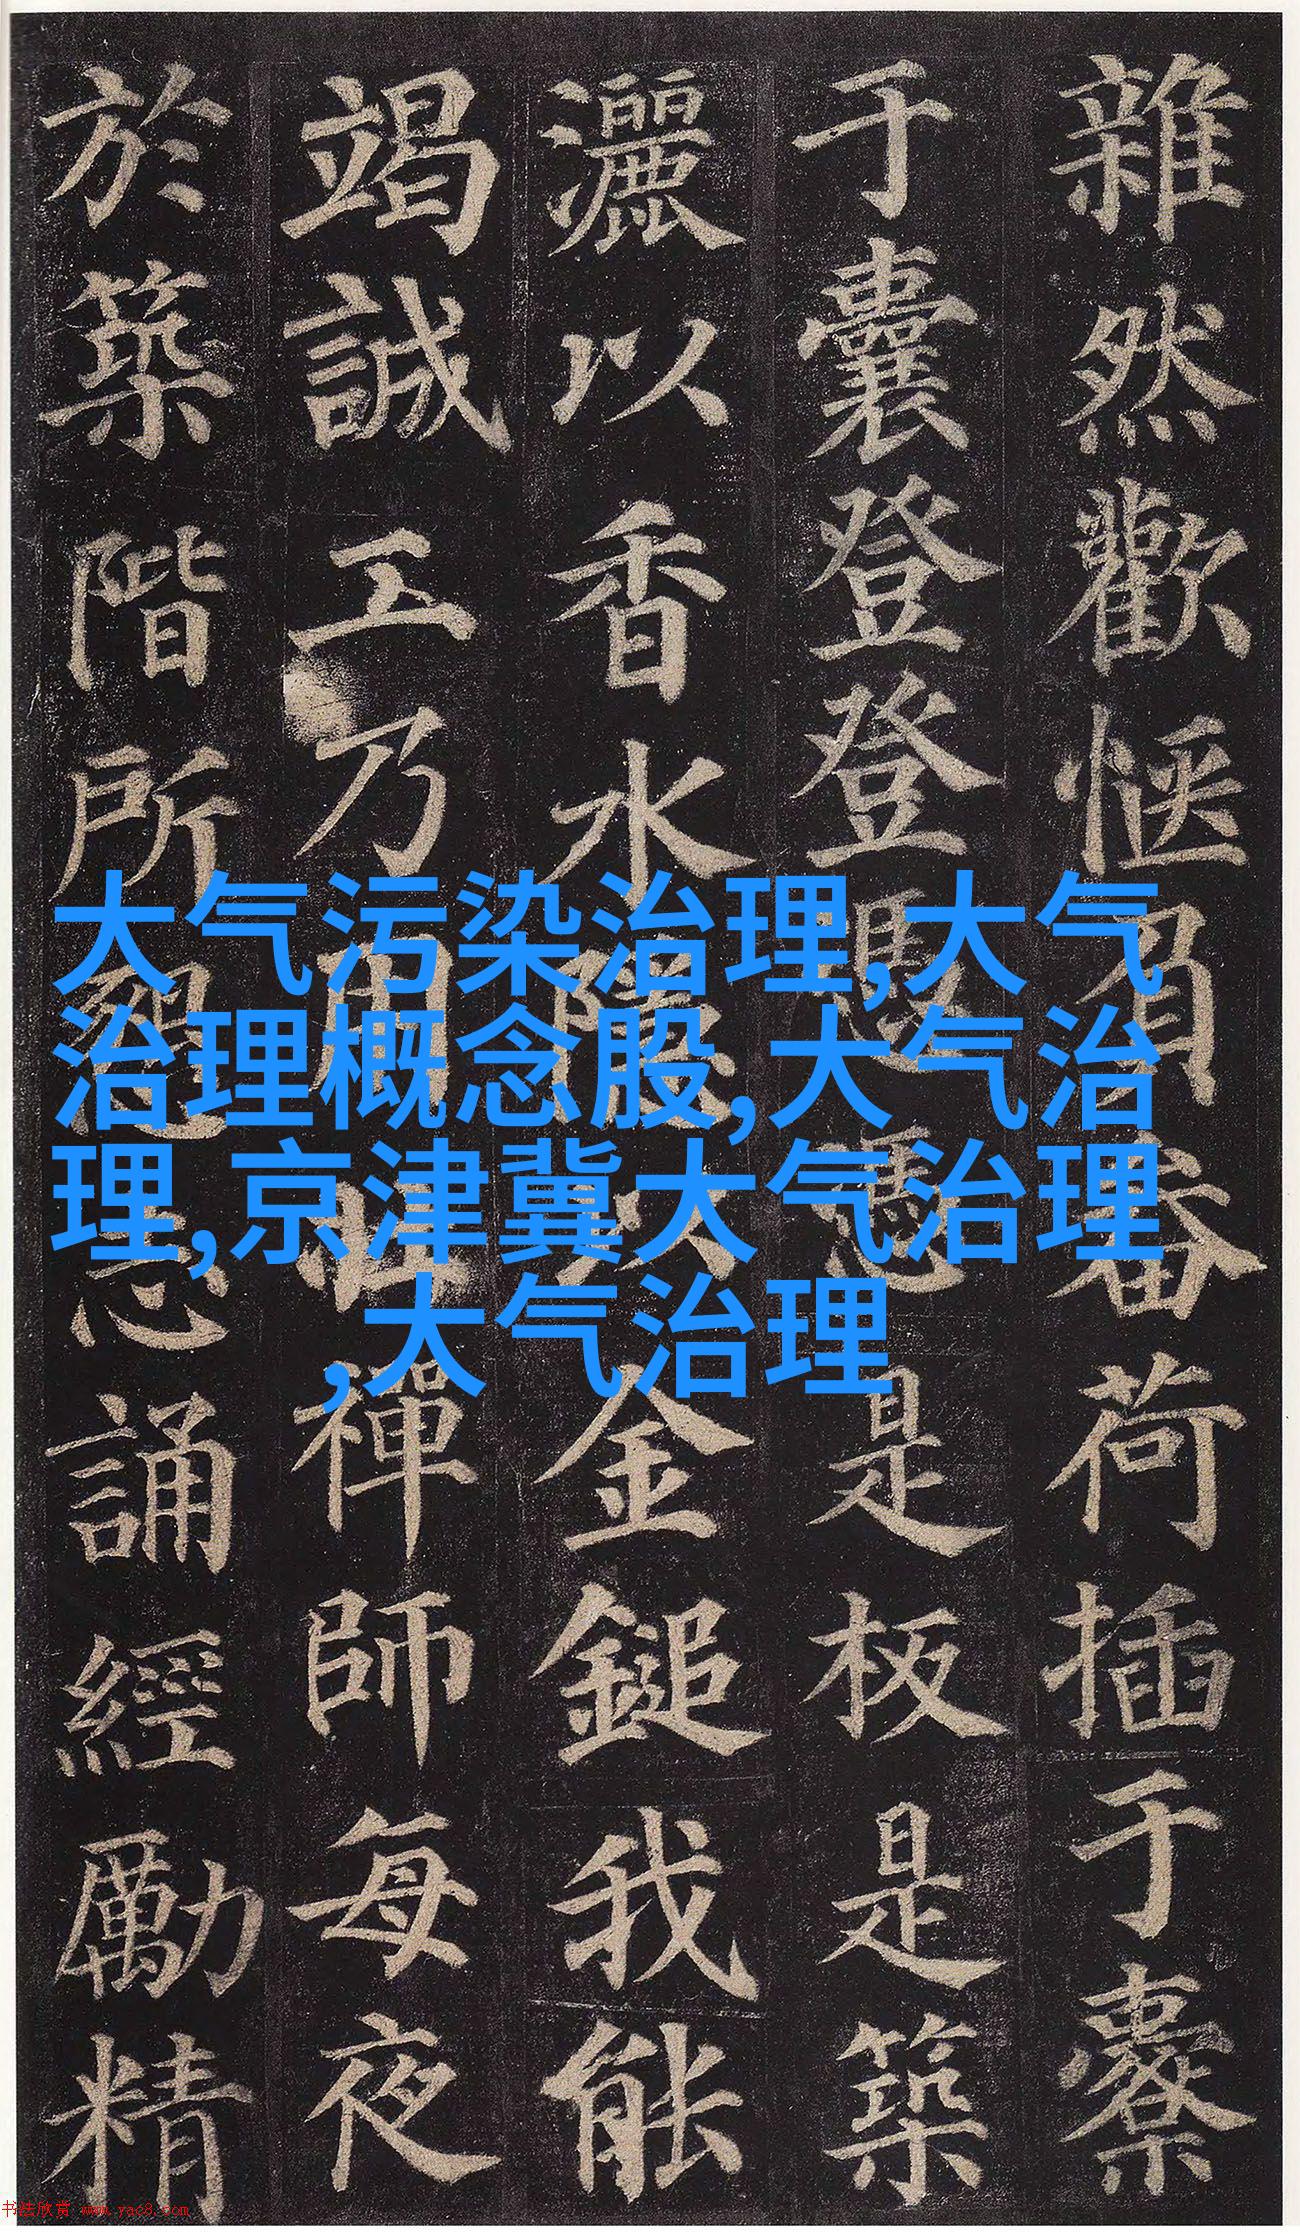 雜然歡愜負畚荷插于橐
于囊登登憑憑是板是築
灑以香水隱以金鎚我能
竭誠工乃用壯禪師每夜
於築階所懇志誦經勵精
大气污染治理,大气
治理概念股,大气治
理,京津冀大气治理
,大气治理
书法欣赏 www.yac8.com